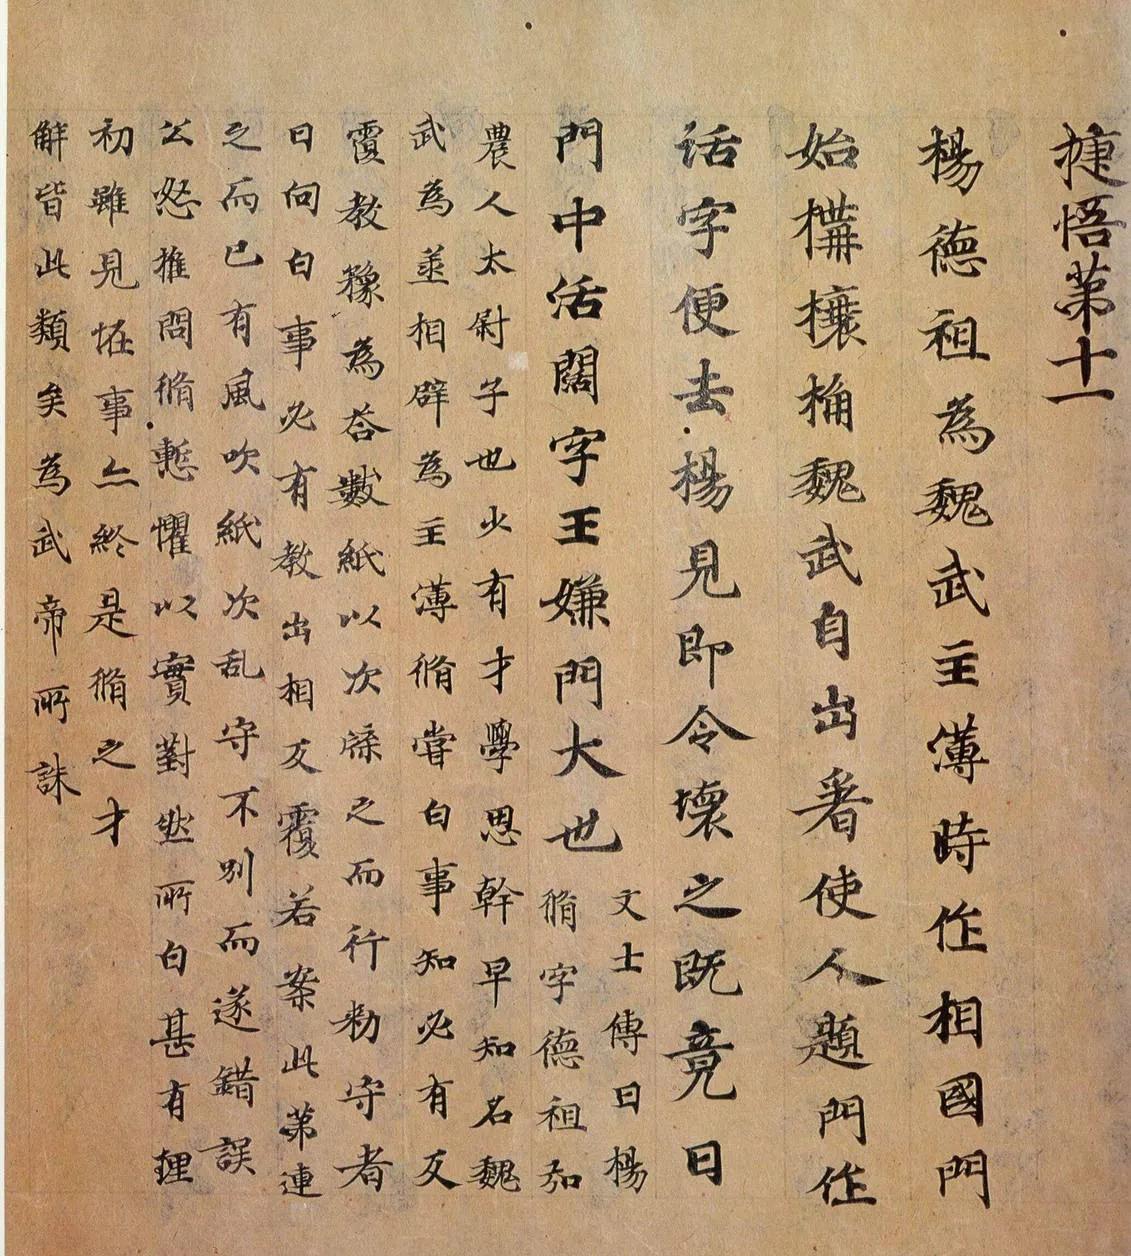 捷悟第十一
楊德祖為魏武主薄時作相國門
始構欀桷魏武自出署使人題門作
活字便去楊見即令壞之既竟曰
門中活闊字王嫌門大也
文士傳曰楊
脩字德祖弘
農人太尉子也少有才學思幹早知名魏
武為丞相辟為主薄脩甞白事知必有反
覆教豫為荅數紙以次牒之而行勑守者
曰向白事必有教出相反覆若案此第連
之而已有風吹紙次乱守不別而遂錯誤
公怒推問脩慙懼以實對然所白甚有理
初雖見恠事亦終是脩之才
解皆此類矣為武帝所誅